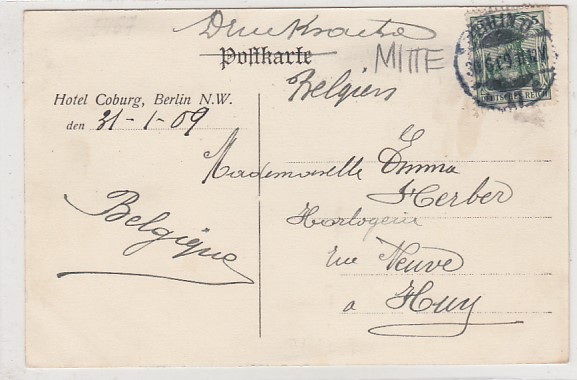 Drucksache
Postkarte
MITTE
Belgien
Hotel Coburg, Berlin N.W.
den 31-1-09
Mademoiselle Emma
Herber
Horlogerie
rue Neuve
a Huy
Belgique
DEUTSCHES REICH